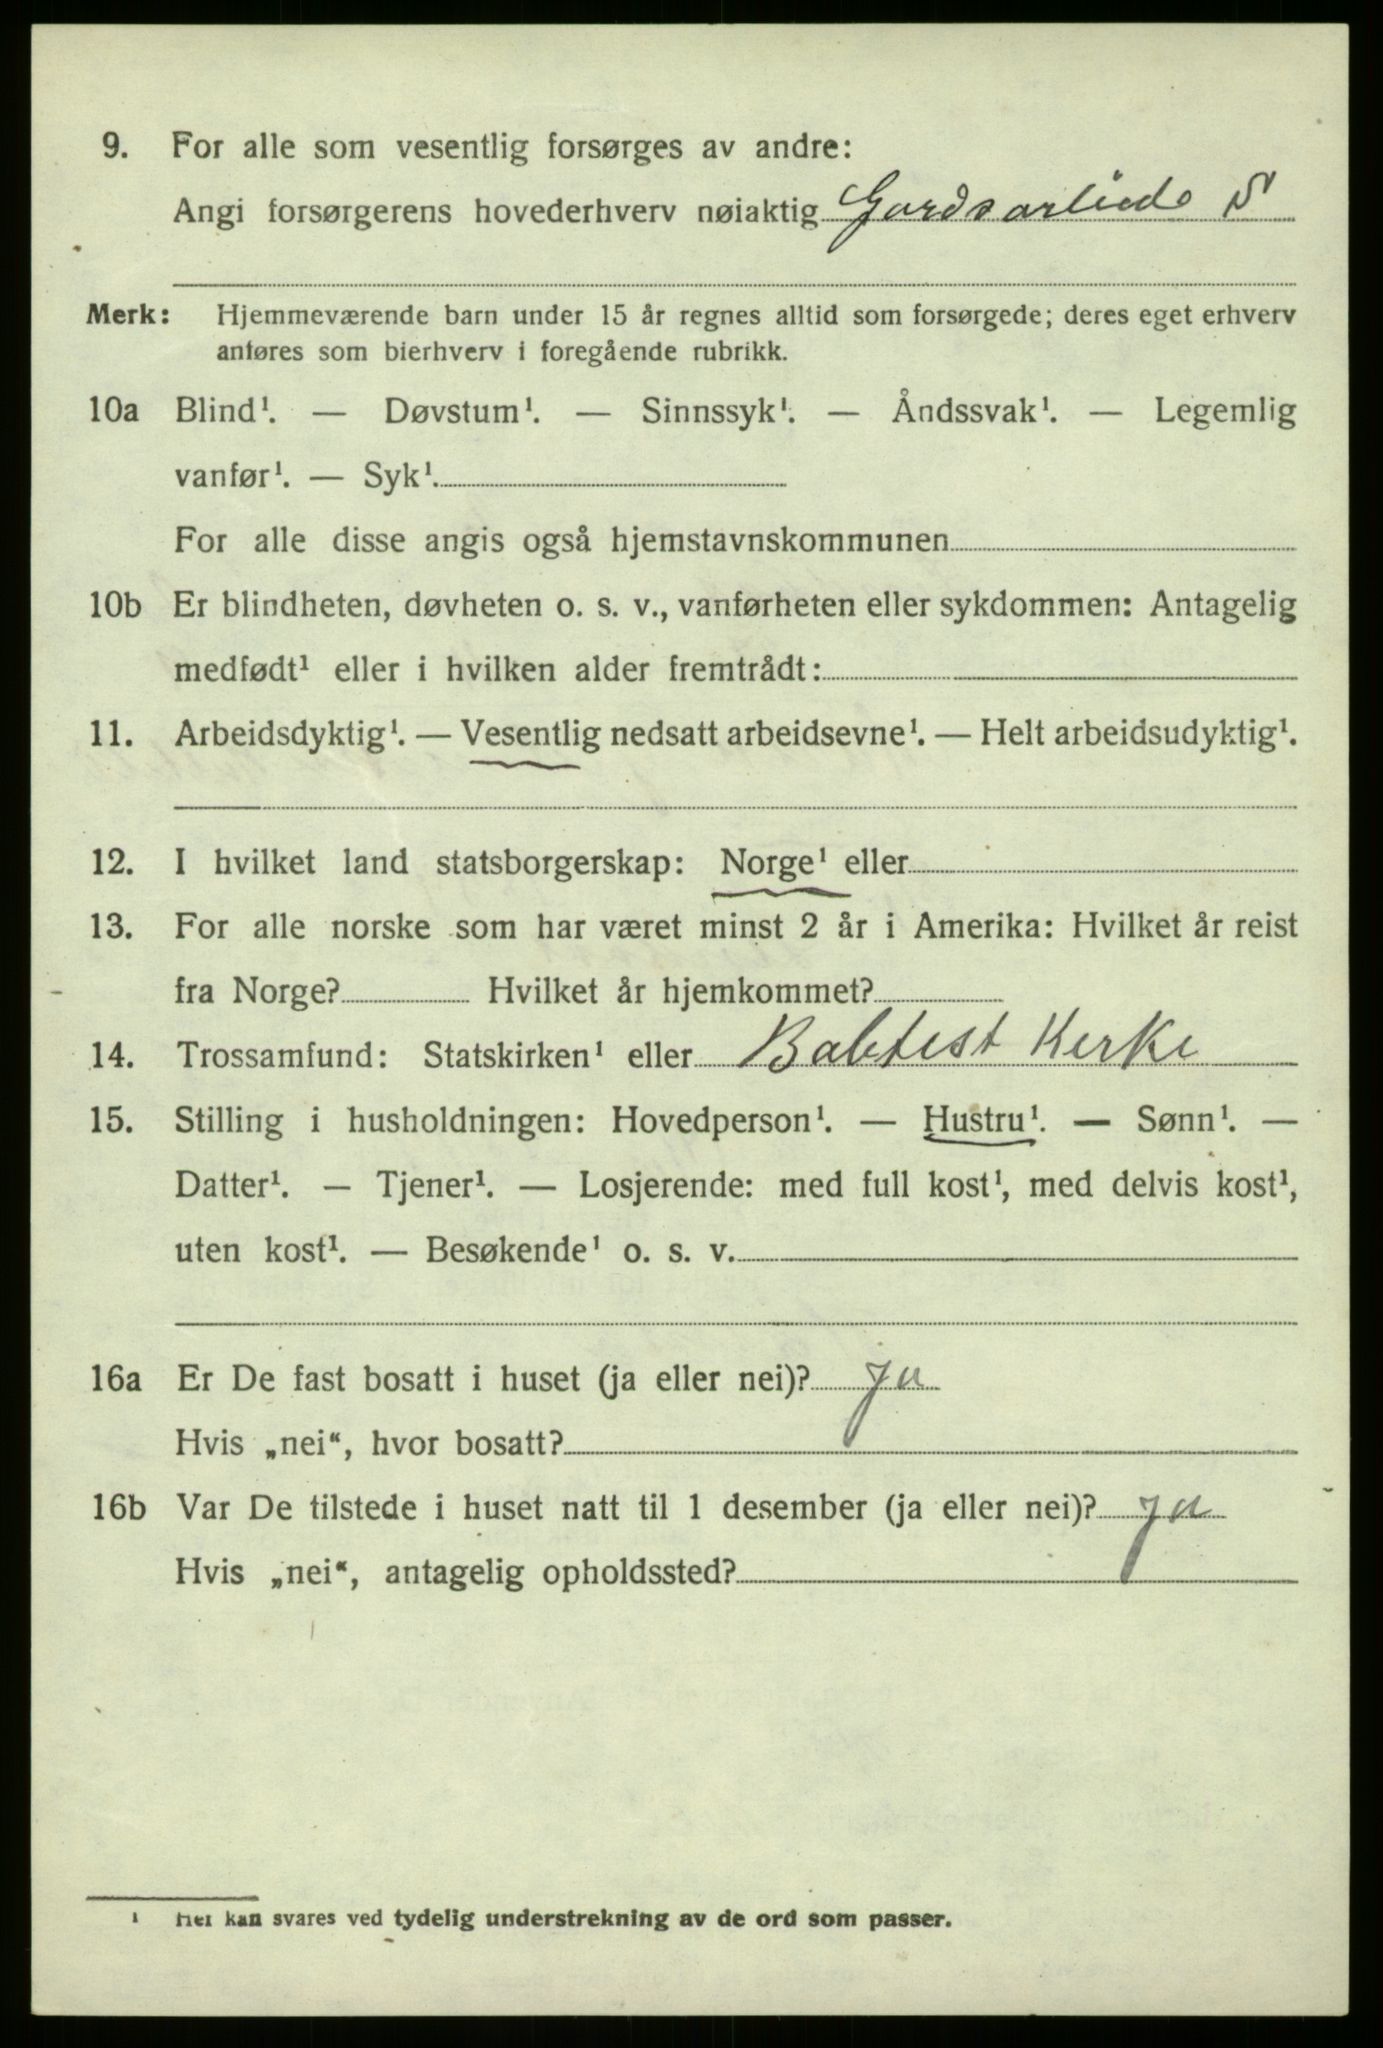 9. For alle som vesentlig forsørges av andre:
Angi forsørgerens hovederhverv nøiaktig Gardsarbeide S
Merk: Hjemmeværende barn under 15 år regnes alltid som forsørgede; deres eget erhverv
anføres som bierhverv i foregående rubrikk.
10a Blind¹. — Døvstum¹. — Sinnssyk¹. — Åndssvak¹. — Legemlig
vanfør¹. — Syk¹.
For alle disse angis også hjemstavnskommunen
10b Er blindheten, døvheten o. s. v., vanførheten eller sykdommen: Antagelig
medfødt¹ eller i hvilken alder fremtrådt:
11. Arbeidsdyktig¹. — Vesentlig nedsatt arbeidsevne¹. — Helt arbeidsudyktig¹.
12. I hvilket land statsborgerskap: Norge¹ eller
13. For alle norske som har været minst 2 år i Amerika: Hvilket år reist
fra Norge? Hvilket år hjemkommet?
14. Trossamfund: Statskirken¹ eller Babtist Kirke
15. Stilling i husholdningen: Hovedperson¹. — Hustru¹. — Sønn¹. —
Datter¹. — Tjener¹. — Losjerende: med full kost¹, med delvis kost¹,
uten kost¹. — Besøkende¹ o. s. v.
16a Er De fast bosatt i huset (ja eller nei)? ja
Hvis „nei“, hvor bosatt?
16b Var De tilstede i huset natt til 1 desember (ja eller nei)? ja
Hvis „nei“, antagelig opholdssted?
¹ Her kan svares ved tydelig understrekning av de ord som passer.